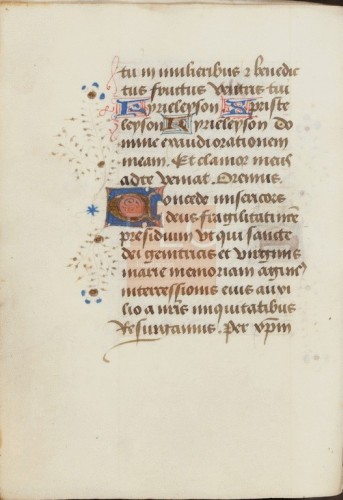 tu in mulieribus ⁊ benedic
tus fructus ventris tui
Kyrieleyson Xpriste
leyson Kyrieleyson Do
mine exaudi orationem
meam. Et clamor meus
ad te veniat. Oremus.
Concede misericors
deus fragilitati nr̄e
presidium vt qui sancte
dei genitricis et virginis
marie memoriam agimꝰ
intercessionis eius auxi
lio a nr̄is iniquitatibus
Resurgamus. Per xp̄m